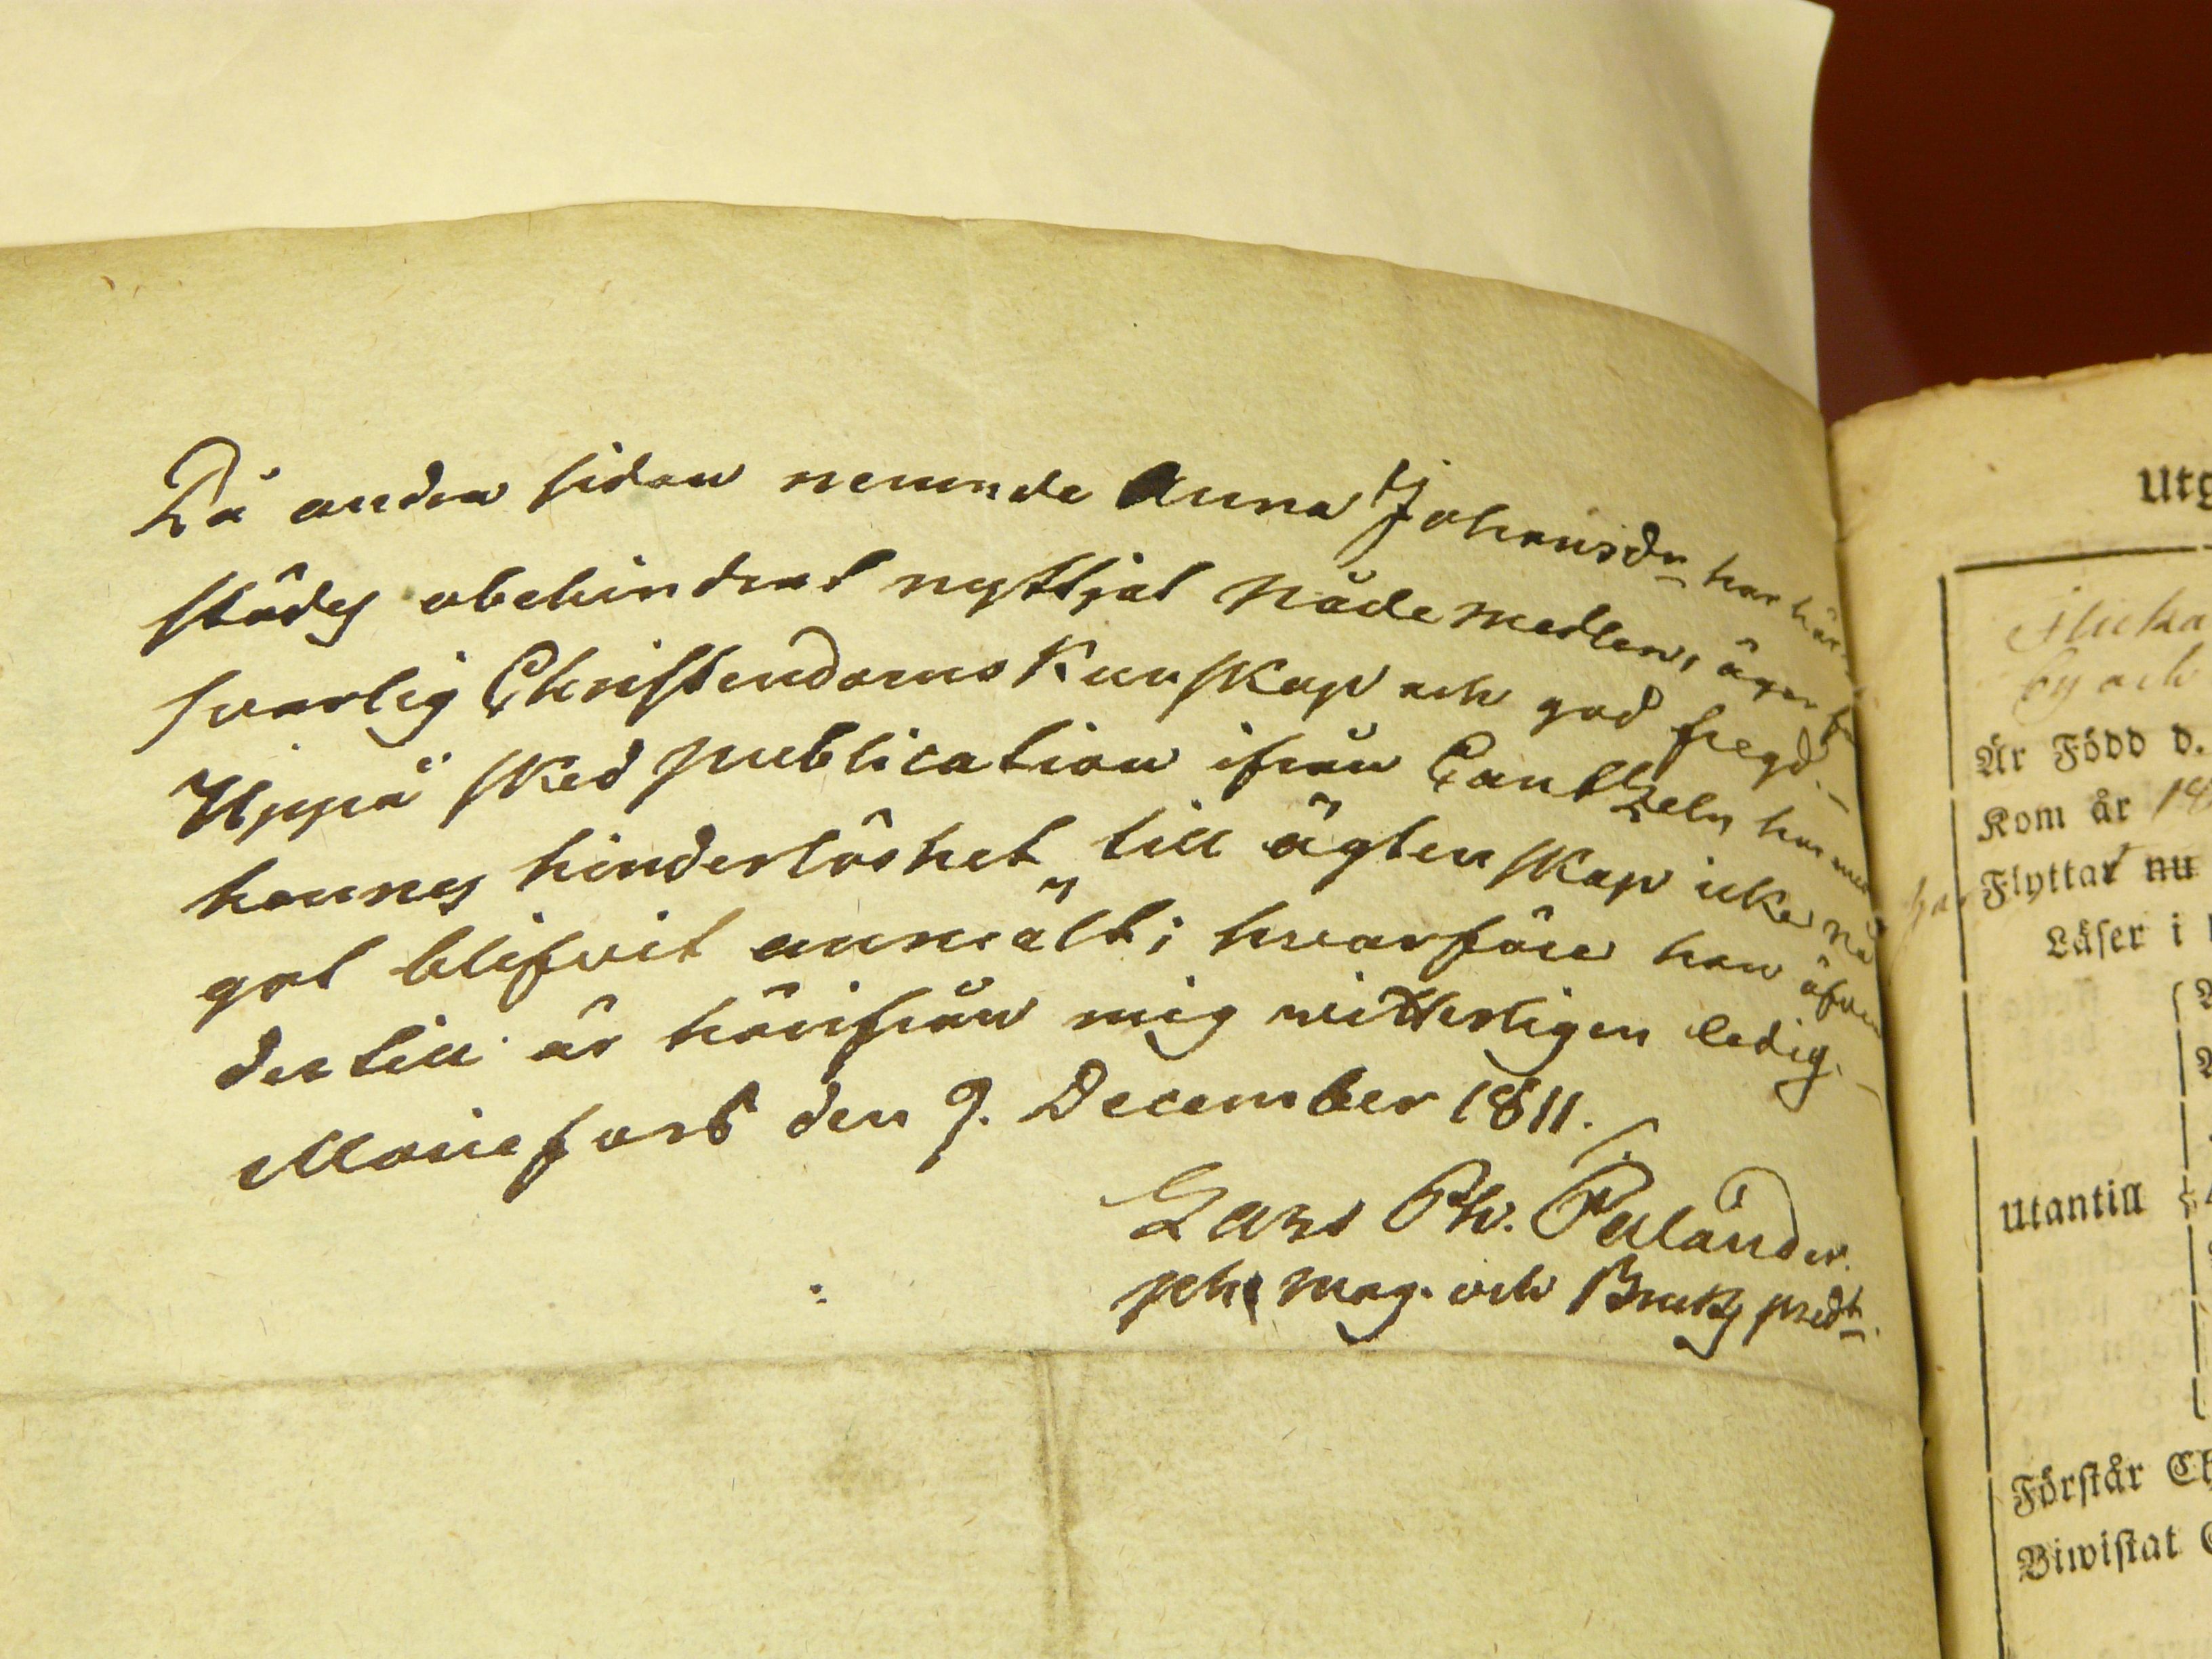 På andra sidan nemnde Anna Johansdr har här
städes obehindrat nyttjat Nådemedlen, äger för
svarlig Christendoms Kunskap och god fregd. –
Uppå sked publication ifrån Cantzeln har mot
hennes hinderlöshet till ägtenskap icke nå
got blifvit anmält; hvarföre hon äfven
dertill är härifrån mig witterligen ledig. –
Mariefors den 9. December 1811.
Lars Ph. Palander.
ph. mag. och Bruks predt.
Utg
Flicka
by och
Är Född d.
Kom år 18
har Flyttat nu
Läser i
Utantill
Förstår Ch
Biwistat